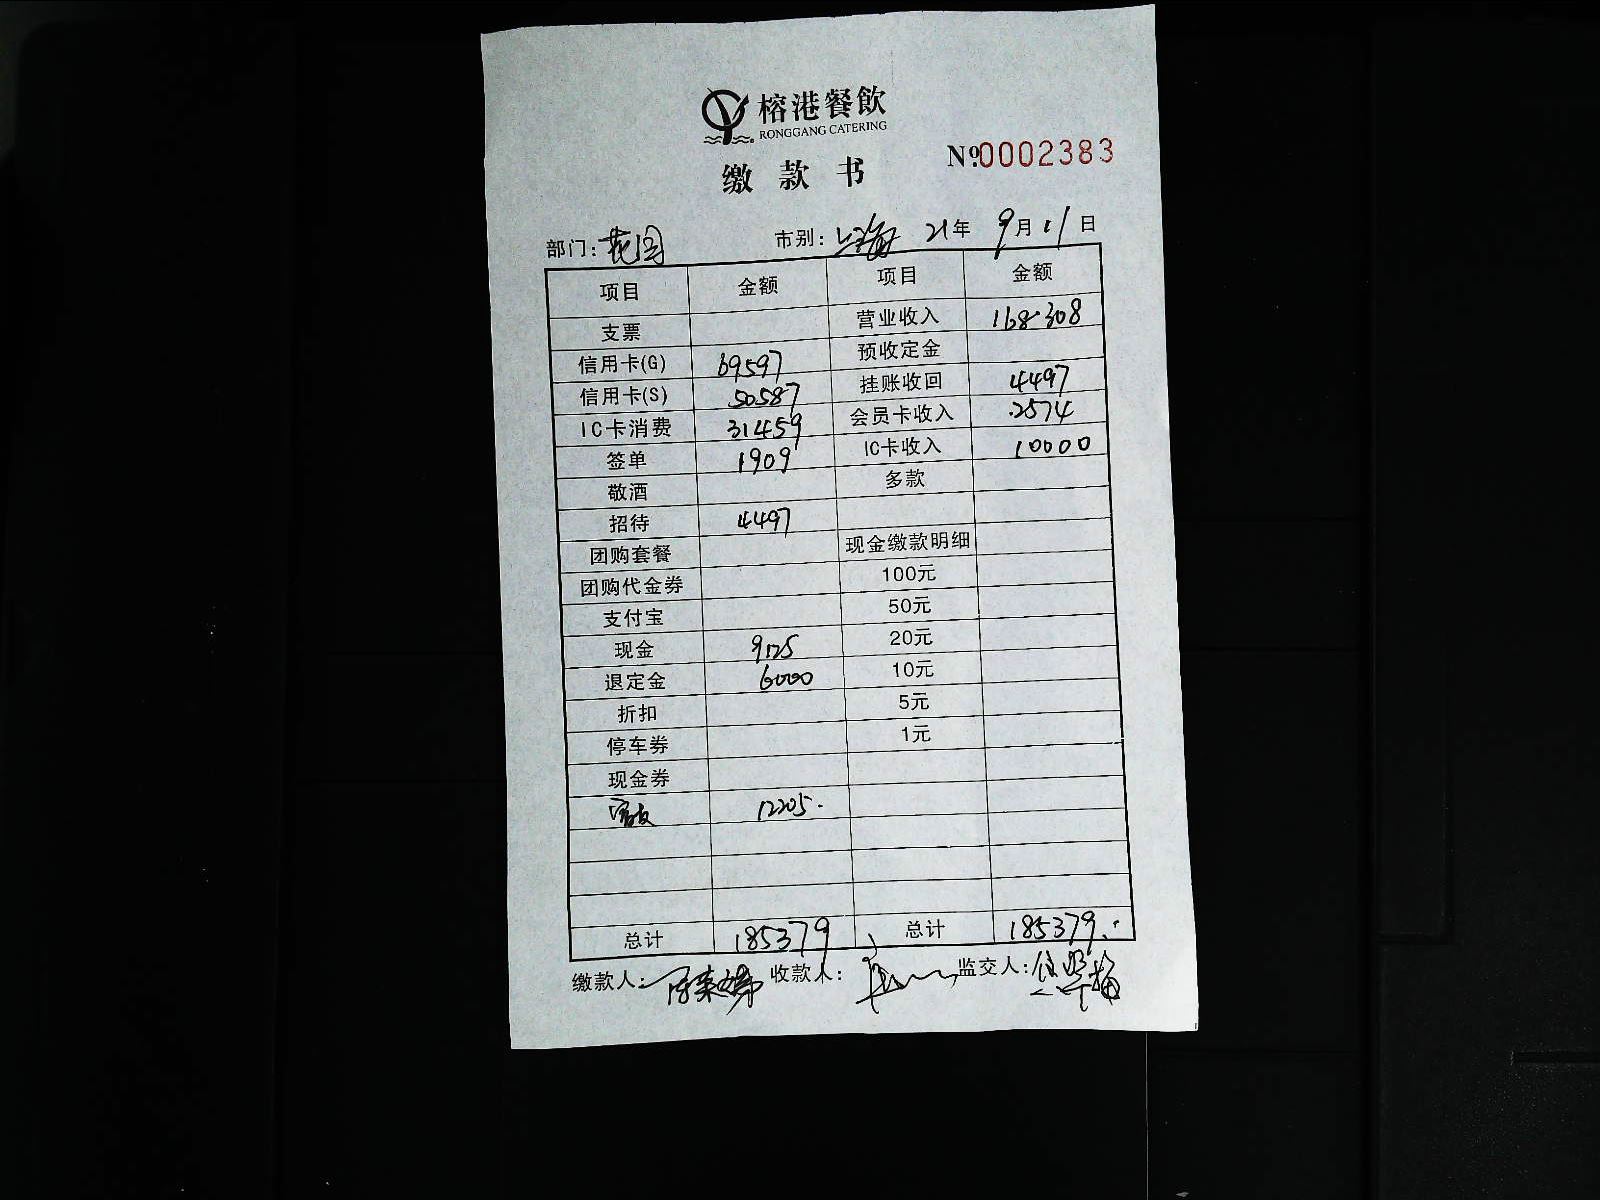 榕港餐飲
RONGGANG CATERING
缴款书
№0002383
部门:花园 市别:上海 21年9月11日
项目 金额 项目 金额
支票 营业收入 168308
信用卡(G) 69597 预收定金
信用卡(S) 50587 挂账收回 4497
IC卡消费 31459 会员卡收入 2574
签单 1909 IC卡收入 10000
敬酒 多款
招待 4497
团购套餐 现金缴款明细
团购代金券 100元
支付宝 50元
现金 9125 20元
退定金 6000 10元
折扣 5元
停车券 1元
现金券
12205.
总计 185379 总计 185379.
缴款人: 收款人: 监交人: